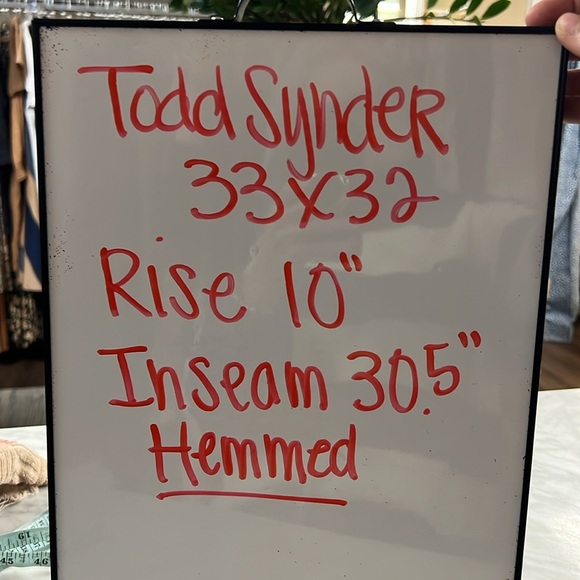 Todd Synder
33x32
Rise 10"
Inseam 30.5"
Hemmed